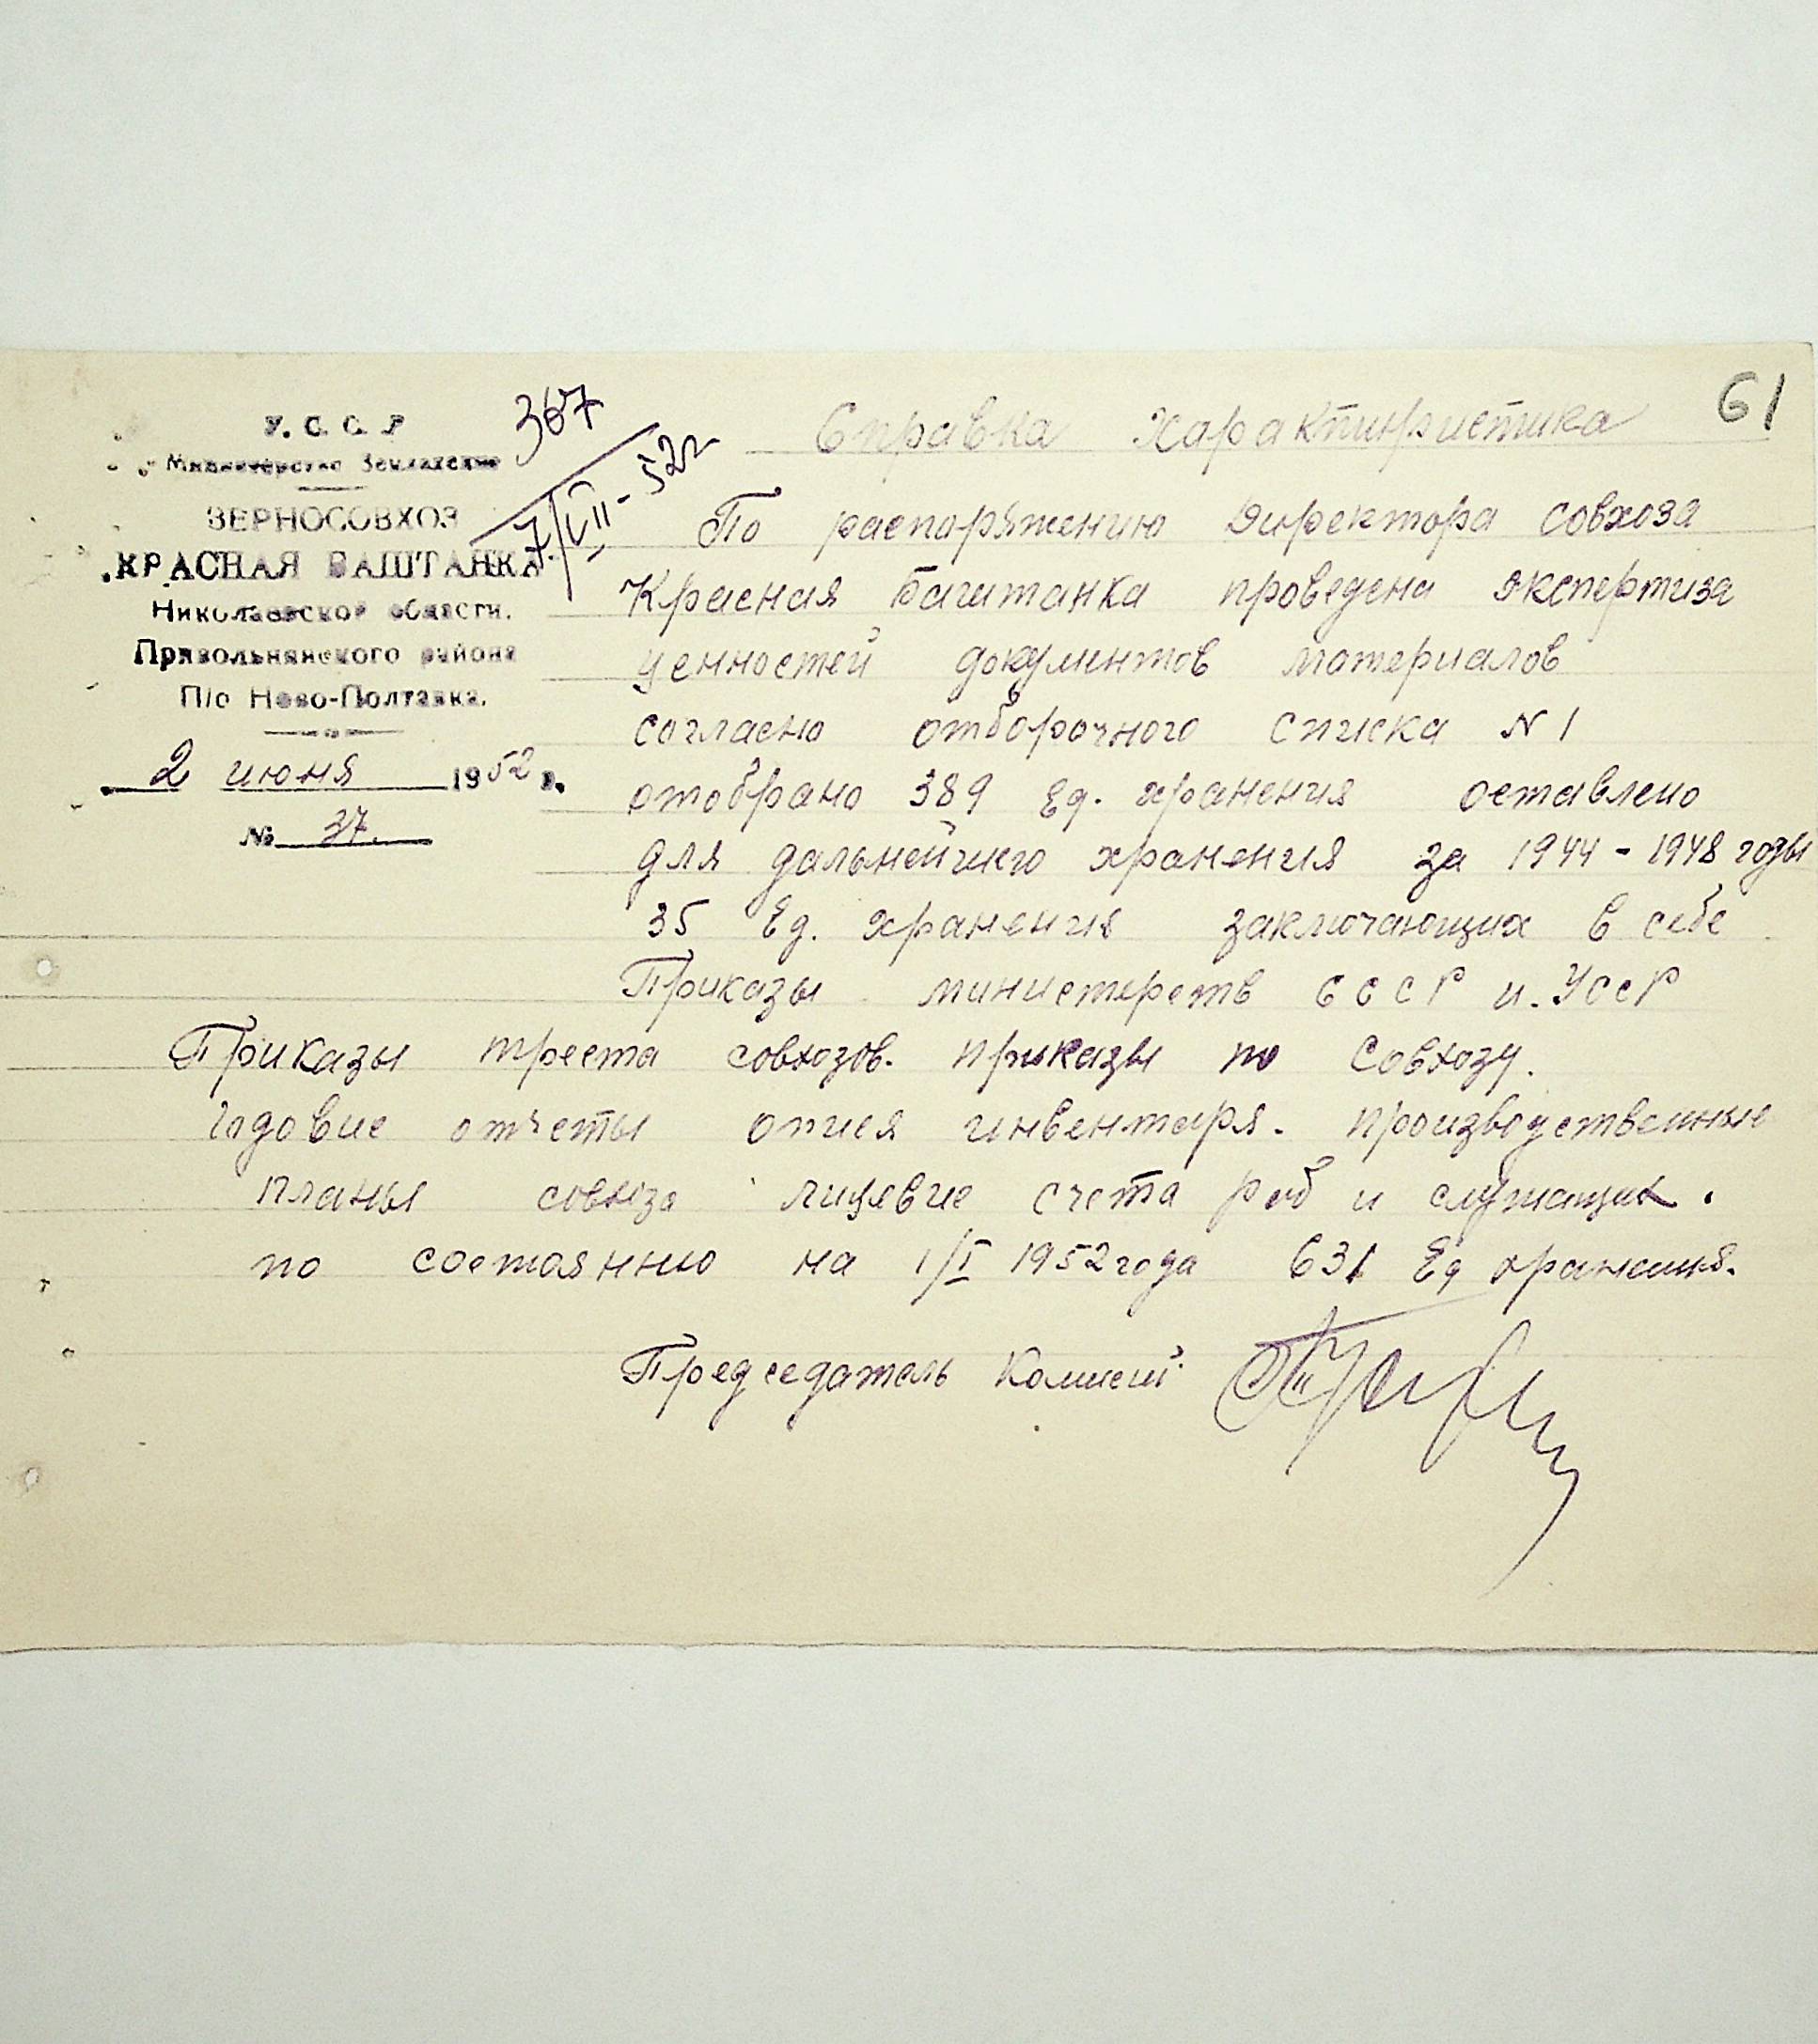 61
У. С. С. Р
Министерство Земледелия
ЗЕРНОСОВХОЗ
КРАСНАЯ БАШТАНКА
Николаевской области.
Привольнянского района
П/о Ново-Полтавка.
2 июня 1952 г.
№ 37.
367
7/VII-52г
Справка Характиристика
По распоряжению Директора совхоза
Красная Баштанка проведена экспертиза
ценностей документов материалов
согласно отборочного списка N 1
отобрано 389 Ед. хранения оставлено
для дальнейшего хранения за 1944-1948 годы
35 Ед. хранения заключающих в себе
Приказы министерств СССР и. УССР
Приказы треста совхозов. приказы по Совхозу.
годовие отчеты опися инвентаря. производственные
планы совхоза лицевие счета раб и служащих.
по состоянию на 1/I 1952 года 631 Ед хранения.
Председатель Комисий